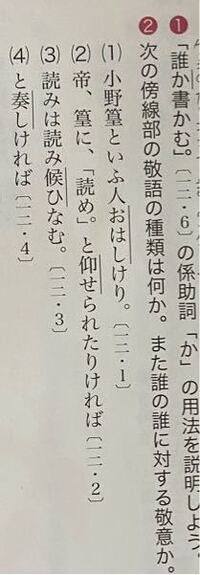 ❶「誰か書かむ。」〔一二・6〕の係助詞「か」の用法を説明しよう。
❷次の傍線部の敬語の種類は何か。また誰の誰に対する敬意か。
(1) 小野篁といふ人おはしけり。〔一二・1〕
(2) 帝、篁に、「読め。」と仰せられたりければ〔一二・2〕
(3) 読みは読み候ひなむ。〔一二・3〕
(4) と奏しければ〔一二・4〕